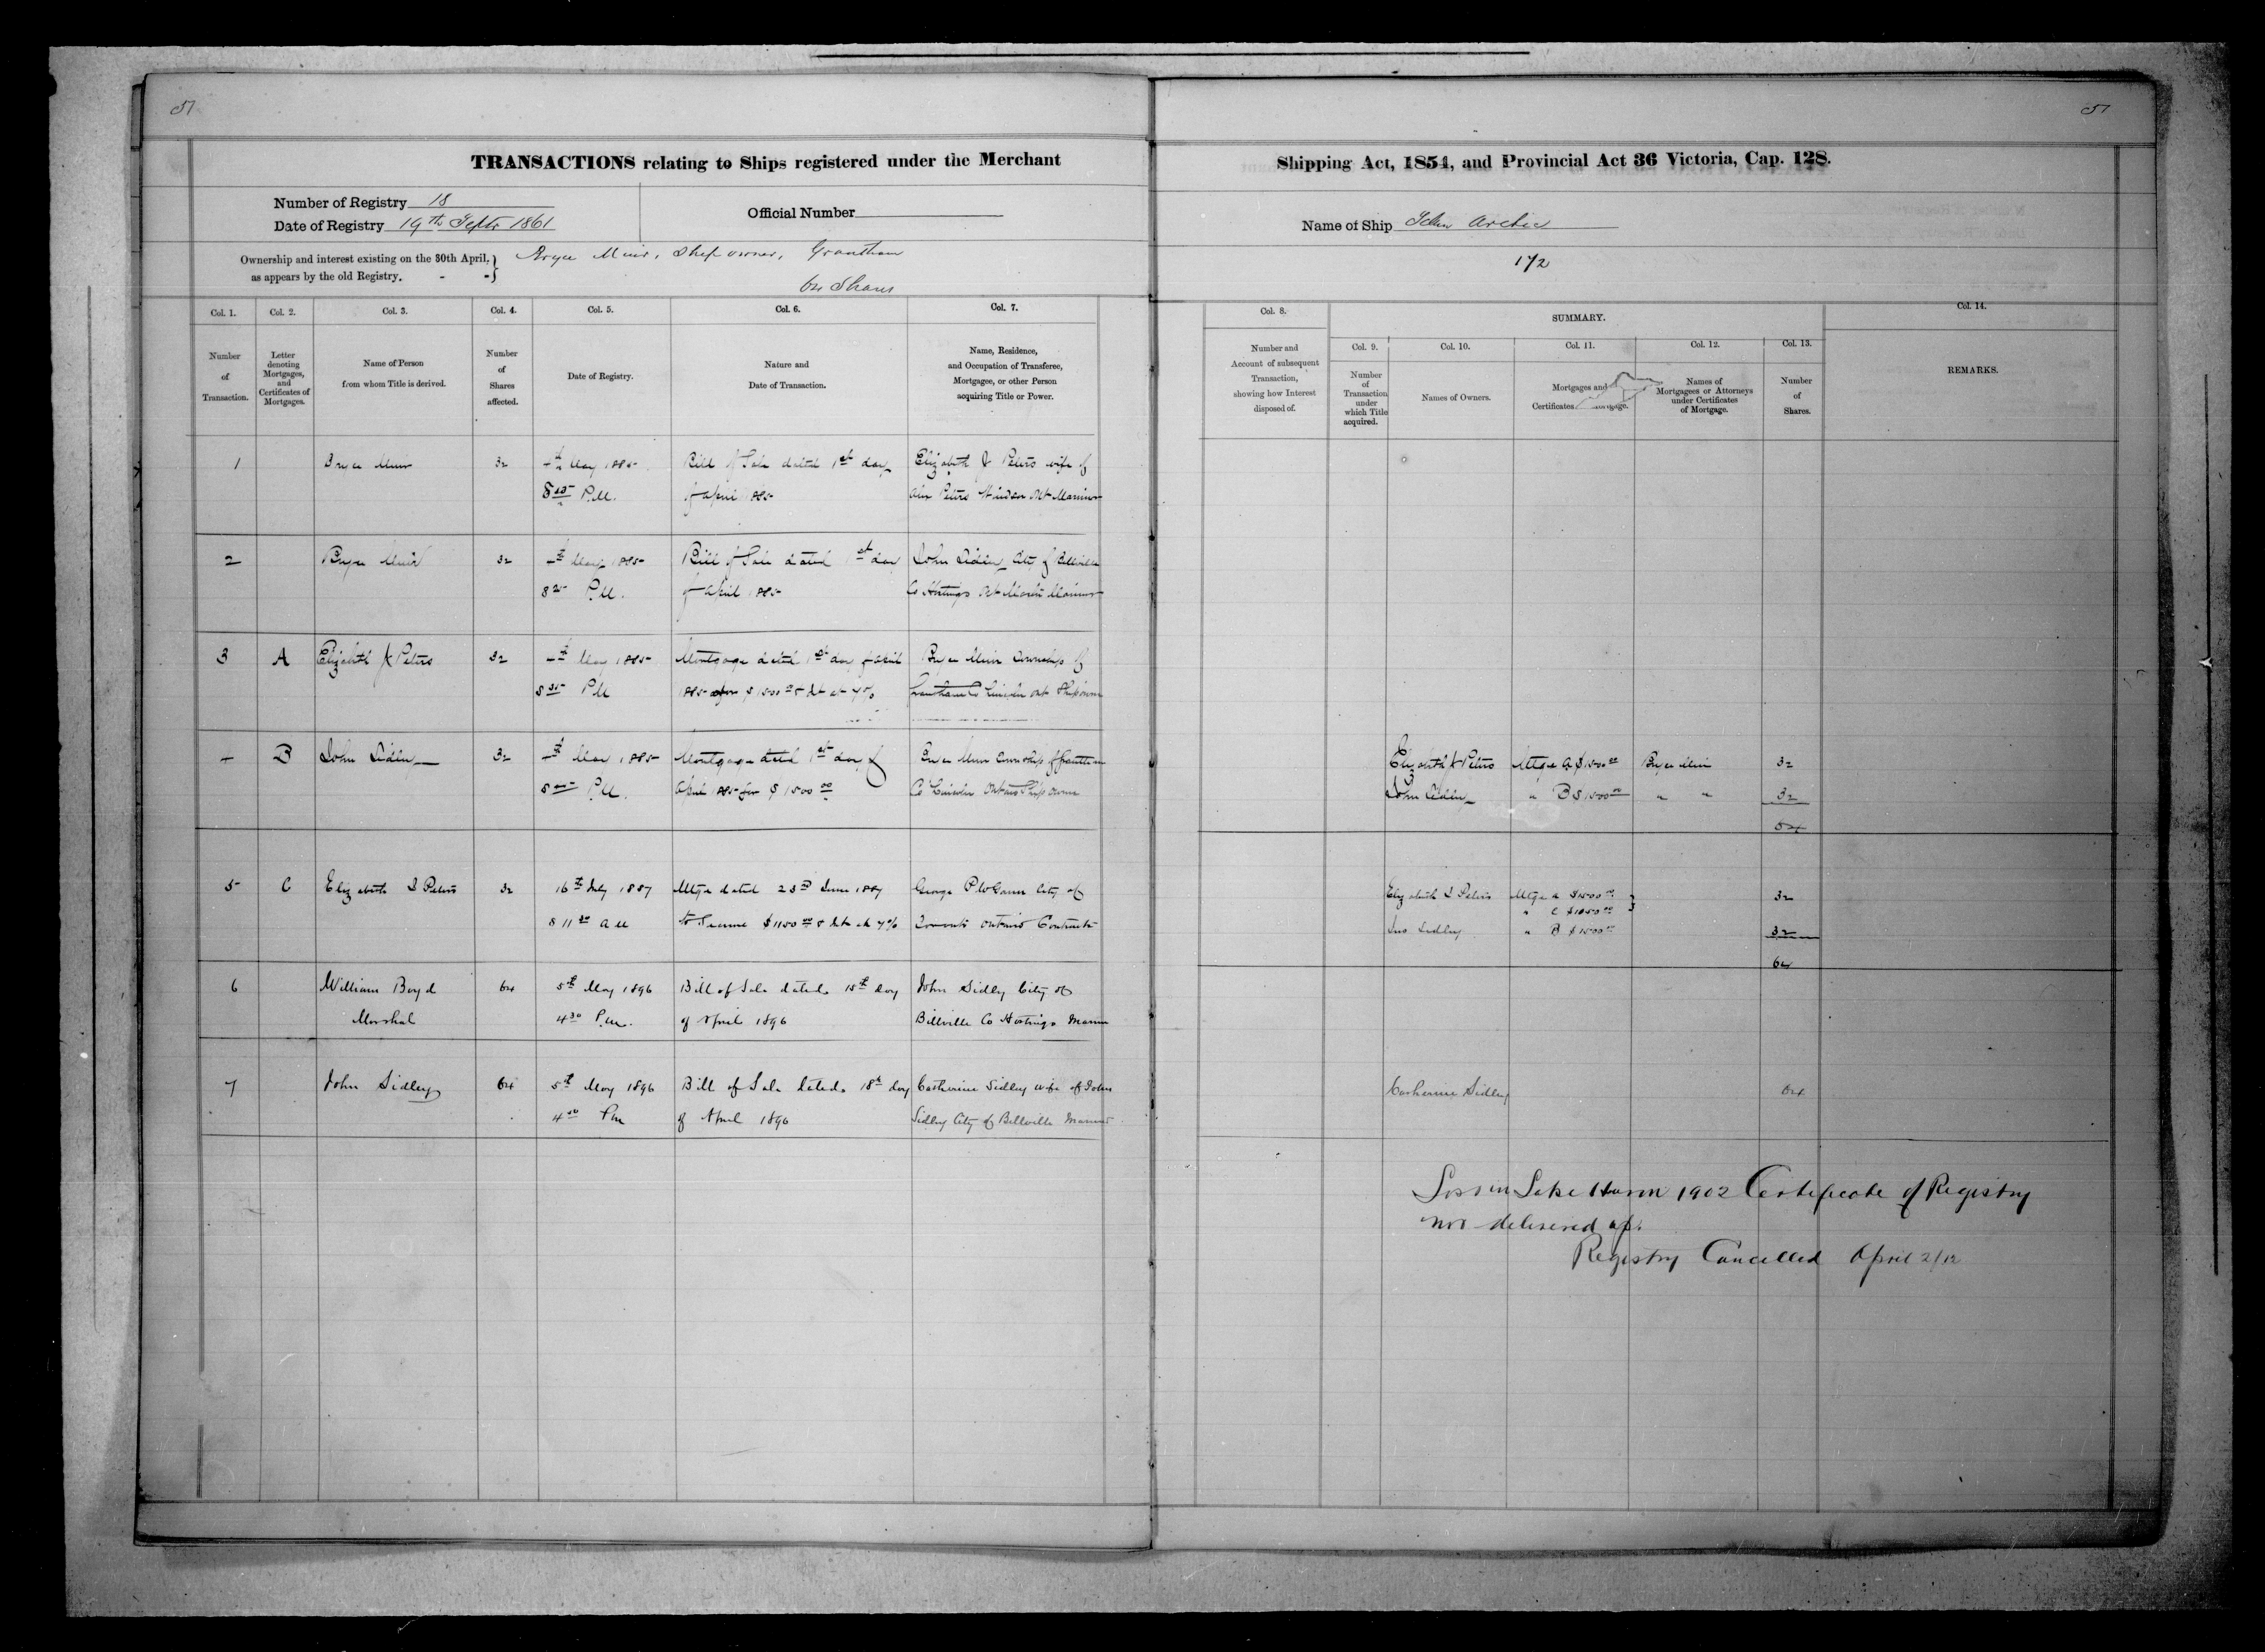 51
51
TRANSACTIONS relating to Ships registered under the Merchant
Shipping Act, 1854, and Provincial Act 36 Victoria, Cap. 128.
Number of Registry 18
Date of Registry 19th Septr 1861
Official Number
Name of Ship
172
Ownership and interest existing on the 30th April,
as appears by the old Registry. - -
Bryce Muir, Ship owner, Grantham
64 Shares
Col. 1.
Number
of
Transaction.
Col. 2.
Letter
denoting
Mortgages,
and
Certificates of
Mortgages.
Col. 3.
Name of Person
from whom Title is derived.
Col. 4.
Number
of
Shares
affected.
Col. 5.
Date of Registry.
Col. 6.
Nature and
Date of Transaction.
Col. 7.
Name, Residence,
and Occupation of Transferee,
Mortgagee, or other Person
acquiring Title or Power.
Col. 8.
Number and
Account of subsequent
Transaction,
showing how Interest
disposed of.
SUMMARY.
Col. 9.
Number
of
Transaction
under
which Title
acquired.
Col. 10.
Names of Owners.
Col. 11.
Mortgages and
Certificates
Col. 12.
Names of
Mortgagees or Attorneys
under Certificates
of Mortgage.
Col. 13.
Number
of
Shares.
Col. 14.
REMARKS.
1 Bryce Muir 32 4th May 1885 Bill of Sale dated 1st day Elizabeth J Peters wife of
P.M. of April 1885 Peters Windsor Ont Mariner
2 Bryce Muir 32 4th May 1885 Bill of Sale dated 1st day John Sidley City of Belleville
8 25 P.M. of April 1885 Co Hastings Ont Mariner
3 A Elizabeth J Peters 32 4th May 1885 Mortgage dated 1st day of April Bryce Muir Township of
8 35 P.M 1885 for $1500 00 & Int at 7% Grantham Co Lincoln Ont Shipowner
4 B John Sidley 32 4th May 1885 Mortgage dated 1st day of Bryce Muir Township of Grantham
P.M. April 1885 for $1500 00 Co Lincoln Ontario Ship owner
Elizabeth J Peters Mtge A $1500 00 Bryce Muir 32
John Sidley " B $1500 00 " " 32
64
5 C Elizabeth J Peters 32 16th July 1887 Mtge dated 23rd June 1887 George City of
8 11 30 AM to Secure $1150 00 & Int at 7% Toronto Ontario
Elizabeth J Peters Mtge A $1500 00 32
" C
Jno Sidley " B $1500 00 32
64
6 William Boyd 64 5th May 1896 Bill of Sale dated 15th day John Sidley City of
Marshal 4 30 P.M. of April 1896 Billville Co Hastings Mariner
7 John Sidley 64 5th May 1896 Bill of Sale dated 18th day Catherine Sidley wife of John
4 50 PM of April 1896 Sidley City of Billville Mariner
Catherine Sidley 64
Loss in Lake Huron 1902 Certificate of Registry
not delivered up.
Registry Cancelled April 2/12